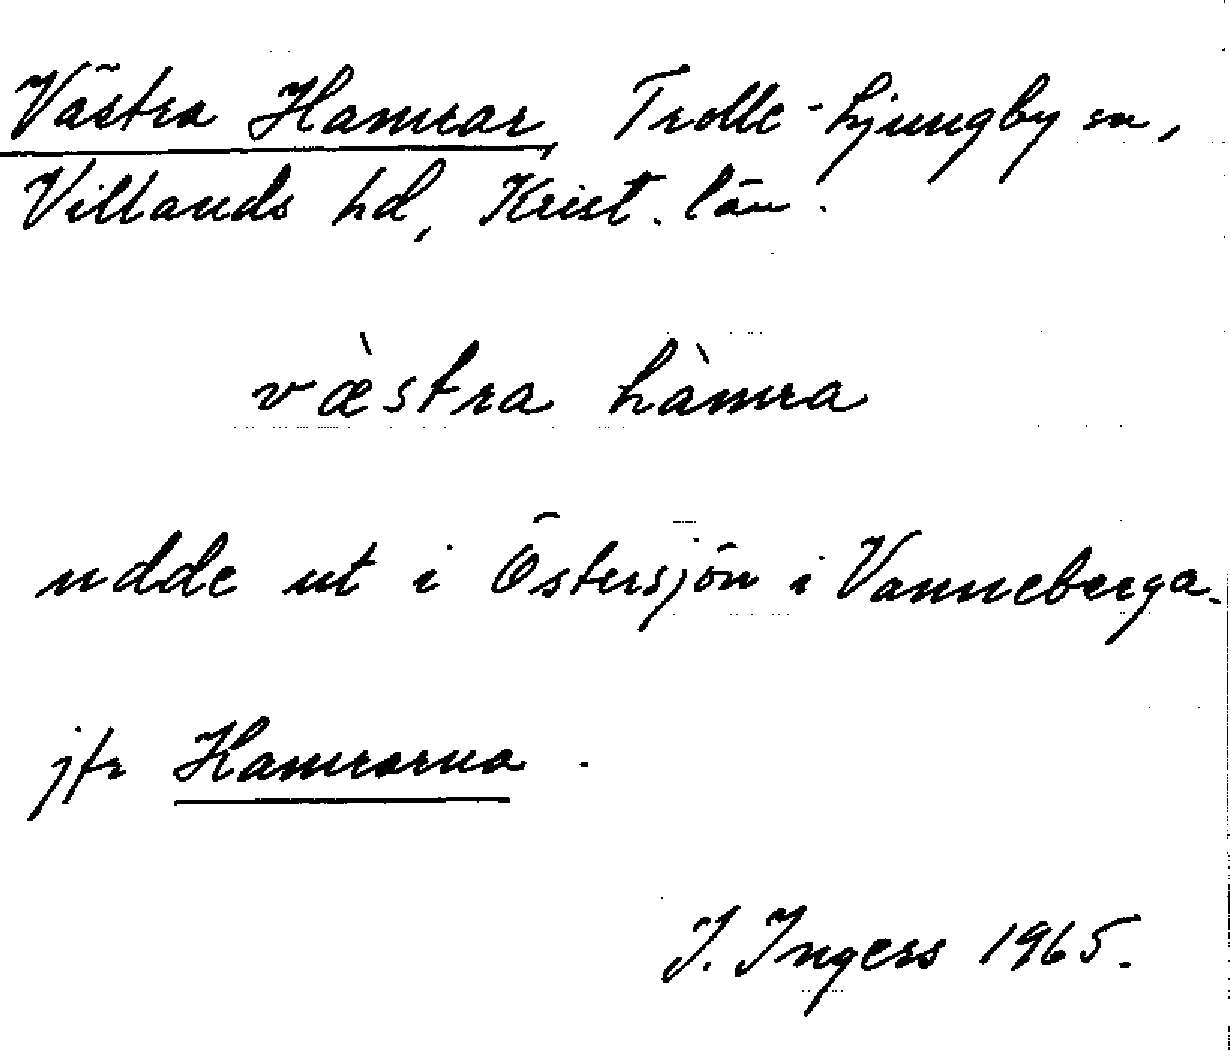 Västra Hamrar, Trolle-Ljungby sn,
Villands hd, Krist. län.
væ̀stra hàmra
udde ut i Östersjön i Vanneberga.
jfr Hamrarna.
I. Ingers 1965.